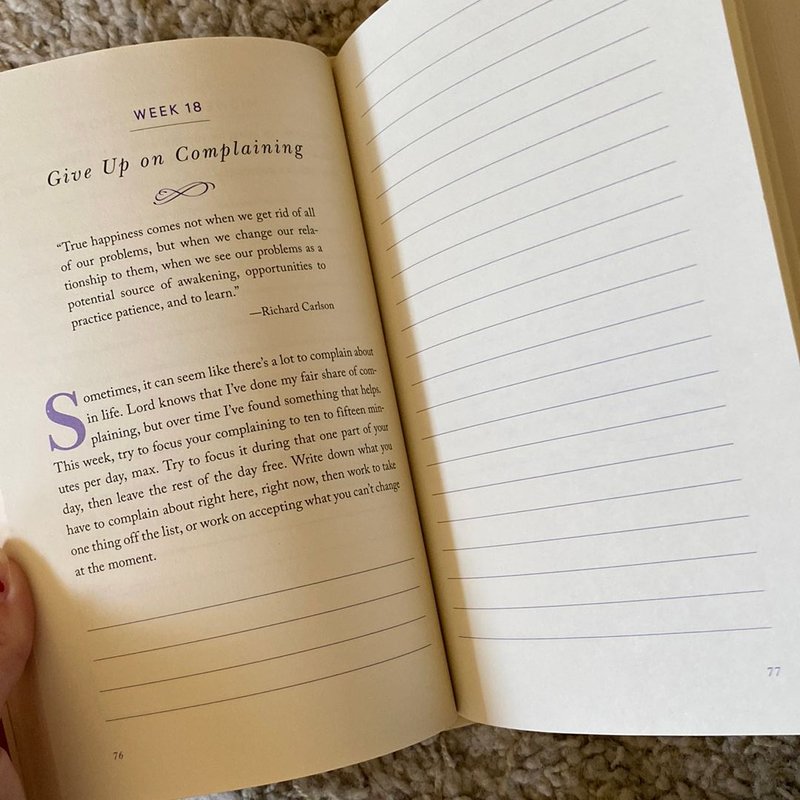 WEEK 18
Give Up on Complaining
“True happiness comes not when we get rid of all
of our problems, but when we change our rela-
tionship to them, when we see our problems as a
potential source of awakening, opportunities to
practice patience, and to learn.”
—Richard Carlson
Sometimes, it can seem like there’s a lot to complain about
in life. Lord knows that I’ve done my fair share of com-
plaining, but over time I’ve found something that helps.
This week, try to focus your complaining to ten to fifteen min-
utes per day, max. Try to focus it during that one part of your
day, then leave the rest of the day free. Write down what you
have to complain about right here, right now, then work to take
one thing off the list, or work on accepting what you can’t change
at the moment.
76
77